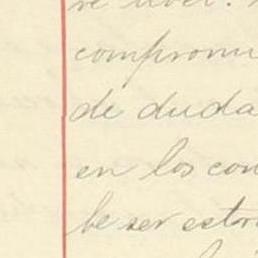 compromi
de duda
en los con
be ser estor